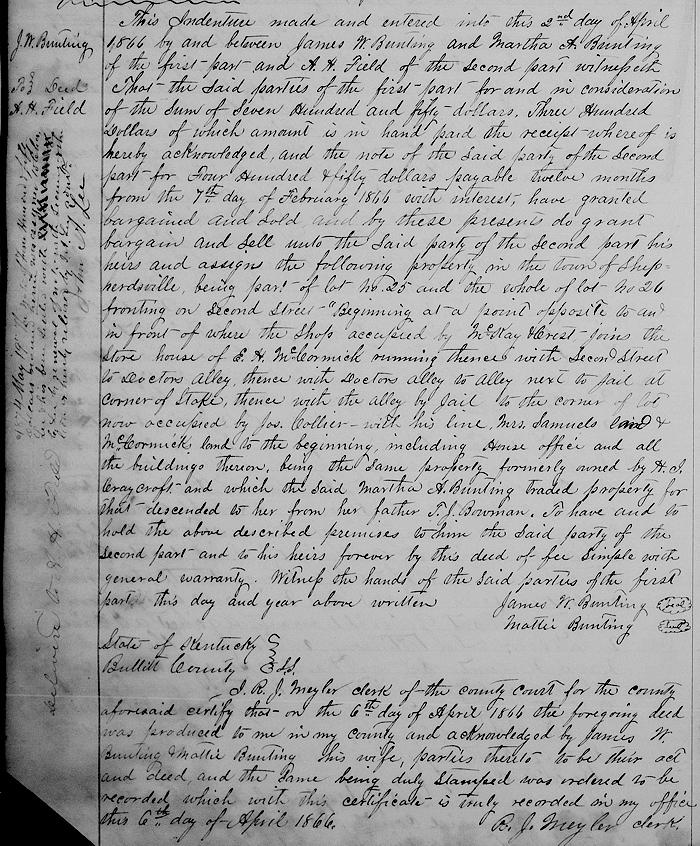 This Indenture made and entered into this 2nd day of April
1866 by and between James W. Bunting and Martha A. Bunting
of the first part and A. H. Field of the Second part witnesseth
That the Said parties of the first part for and in consideration
of the Sum of Seven Hundred and fifty dollars, Three Hundred
Dollars of which amount is in hand paid the receipt whereof is
hereby acknowledged, and the note of the Said party of the Second
part for Four Hundred & fifty dollars payable twelve months
from the 7th day of February 1866 with interest, have granted
bargained and Sold and by these presents do grant
bargain and Sell unto the Said party of the Second part his
heirs and assigns the following property in the town of Shep-
herdsville, being part of lot No. 25 and the whole of lot No 26
fronting on Second Street - "Beginning at a point opposite to and
in front of where the Shop occupied by McKay & Crest joins the
Store house of E. H. McCormick running thence with Second Street
to Doctors Alley, thence with Doctors alley to Alley next to Jail at
corner of Stake, thence with the alley by Jail to the corner of lot
now occupied by Jos. Collier - with his line, Mrs. Samuels land &
McCormick, land to the beginning, including House office and all
the buildings thereon, being the Same property formerly owned by H. I.
Craycroft and which the Said Martha A. Bunting traded property for
that descended to her from her father T. J. Bowman, To have and to
hold the above described premises to him the Said party of the
Second part and to his heirs forever by this deed of fee Simple with
general warranty. Witness the hands of the Said parties of the first
part this day and year above written
James W. Bunting (Seal)
Mattie Bunting (Seal)
State of Kentucky
Bullitt County Sct.
I. R. J. Meyler clerk of the county court for the county
aforesaid certify that on the 6th day of April 1866 the foregoing deed
was produced to me in my county and acknowledged by James W.
Bunting & Mattie Bunting his wife, parties thereto to be their act
and deed and the Same being duly Stamped was ordered to be
recorded which with this certificate is truly recorded in my office
this 6th day of April 1866.
R. J. Meyler clerk.
J. W. Bunting
To Deed
A. H. Field